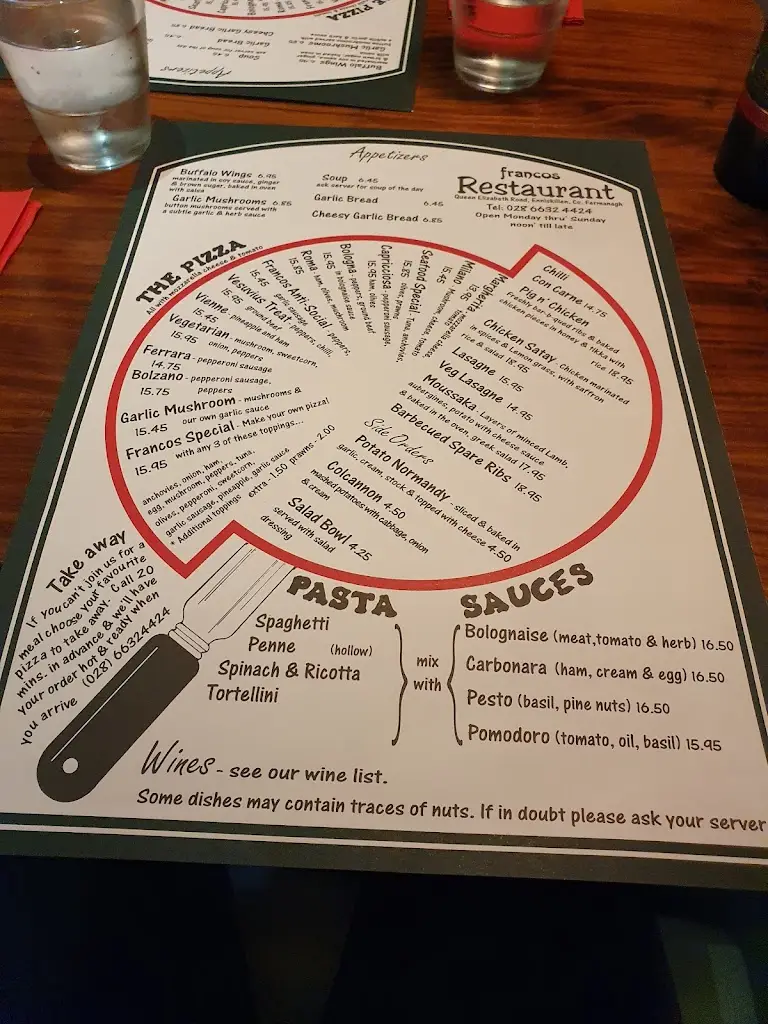 Appetizers
Buffalo Wings 6.95
marinated in soy sauce, ginger
& brown sugar, baked in oven
with salsa
Garlic Mushrooms 6.85
button mushrooms served with
a subtle garlic & herb sauce
Soup 6.45
ask server for soup of the day
Garlic Bread 6.45
Cheesy Garlic Bread 6.85
francos
Restaurant
Queen Elizabeth Road, Enniskillen, Co. Fermanagh
Tel: 028 6632 4424
Open Monday thru' Sunday
noon' till late
THE PIZZA
All with mozzarella cheese & tomato
Margherita
Milano
15.45
Seafood Special - Tuna, anchovies,
15.85 olives, prawns
Capricciosa - pepperoni sausage,
15.95 ham, olives
Bologna - peppers, ground beef
15.95 in bolognaise sauce
Roma - ham, olives, mushroom
15.85
Francos Anti-Social - peppers,
15.45 garlic sausage
Vesuvius Treat - peppers, chilli,
15.95 ground beef
Vienne - pineapple and ham
15.45
Vegetarian - mushroom, sweetcorn,
15.95 onion, peppers
Ferrara - pepperoni sausage
14.75
Bolzano - pepperoni sausage,
15.75 peppers
Garlic Mushroom - mushrooms &
15.45 our own garlic sauce
Francos Special - Make your own pizza!
15.95 with any 3 of these toppings...
anchovies, onion, ham,
egg, mushroom, peppers, tuna,
olives, pepperoni, sweetcorn,
garlic sausage, pineapple, garlic sauce
* Additional toppings extra - 1.50 prawns - 2.00
Chilli
Con Carne 14.75
Pig n' Chicken
Freshly bar-b-qued ribs & baked
chicken pieces in honey & tikka with
rice 18.95
Chicken Satay - Chicken marinated
in spices & Lemon grass, with saffron
rice & salad 18.95
Lasagne 15.95
Veg Lasagne 14.95
Moussaka - Layers of minced Lamb,
aubergines, potato with cheese sauce
& baked in the oven, greek salad 17.95
Barbecued Spare Ribs 18.95
Side Orders
Potato Normandy - sliced & baked in
garlic, cream, stock & topped with cheese 4.50
Colcannon 4.50
mashed potatoes with cabbage, onion
& cream
Salad Bowl 4.25
served with salad
dressing
Take away
If you can't join us for a
meal choose your favourite
pizza to take away. Call 20
mins. in advance & we'll have
your order hot & ready when
you arrive (028) 66324424
PASTA
Spaghetti
Penne (hollow)
Spinach & Ricotta
Tortellini
mix
with
SAUCES
Bolognaise (meat,tomato & herb) 16.50
Carbonara (ham, cream & egg) 16.50
Pesto (basil, pine nuts) 16.50
Pomodoro (tomato, oil, basil) 15.95
Wines - see our wine list.
Some dishes may contain traces of nuts. If in doubt please ask your server